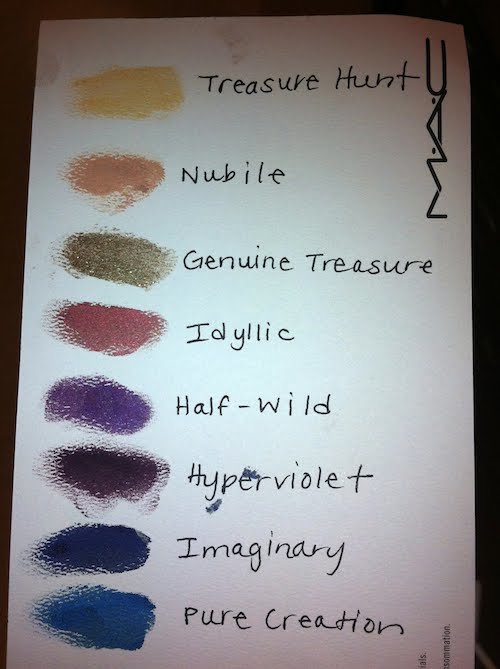 Treasure Hunt
M·A·C
Nubile
Genuine Treasure
Idyllic
Half-Wild
Hyperviolet
Imaginary
Pure Creation